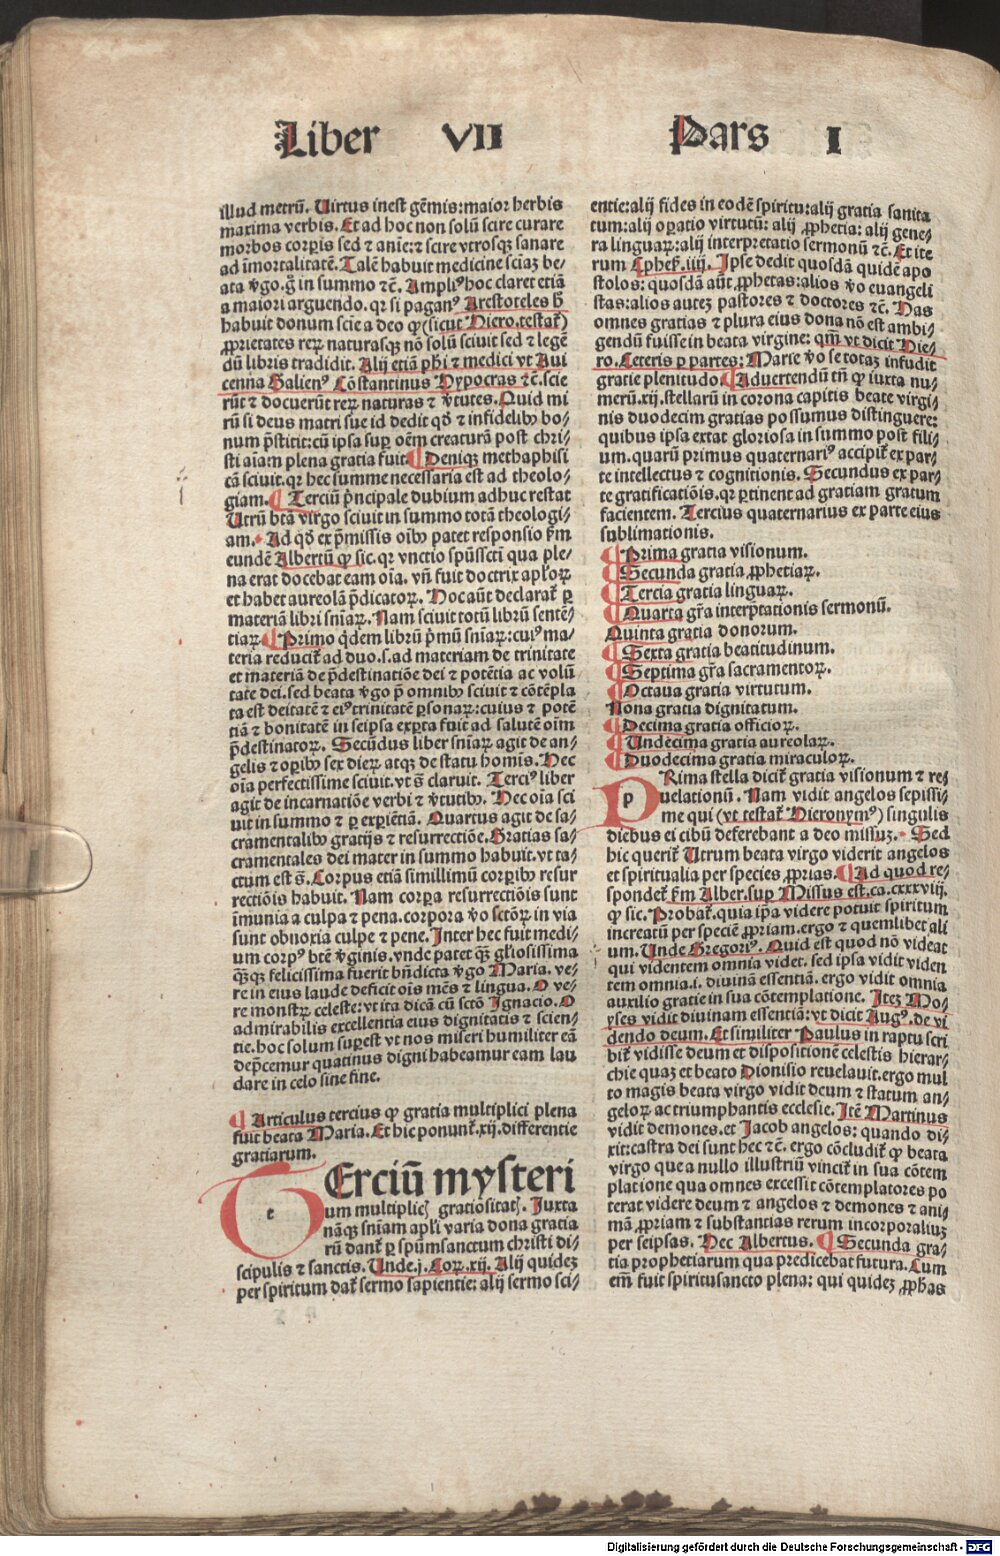 Liber VII Pars I
illud metrū. Uirtus inest gēmis: maior herbis
maxima verbis. Et ad hoc non solū scire curare
morbos corꝑis sed ⁊ anie: ⁊ scire vtrosqꝫ sanare
ad īmortalitatē. Talē habuit medicine sciaꝫ be⸗
ata ꝟgo. g̃ in summo ⁊c̄. Ampliꝰ hoc claret etiā
a maiori arguendo. qꝛ si paganꝰ Arestoteles h̄
habuit donum scie a deo ꝙ (sicut Hiero. testat᷑)
ꝓprietates reꝝ naturasqꝫ nō solū sciuit sed ⁊ legē
dū libris tradidit. Alij etiā ph̄i ⁊ medici vt Aui
cenna Galienꝰ Cōstantinus Hypocras ⁊c̄. scie
rūt ⁊ docuerūt reꝝ naturas ⁊ ꝟtutes. Quid mi
rū si deus matri sue id dedit qd̄ ⁊ infidelibꝰ bo⸗
num p̄stitit: cū ipsa suꝑ oēm creaturā post chri⸗
sti aīam plena gratia fuit. ¶ Deniqꝫ methaphisi
cā sciuit. qꝛ hec summe necessaria est ad theolo⸗
giam. ¶ Terciū p̄ncipale dubium adhuc restat
Utrū btā virgo sciuit in summo totā theologi⸗
am. Ad qd̄ ex p̄missis oībꝰ patet responsio ẜm
eundē Albertū ꝙ sic. qꝛ vnctio spūssctī qua ple⸗
na erat docebat eam oīa. vn̄ fuit doctrix apl̄oꝝ
et habet aureolā p̄dicatoꝝ. Hoc aūt declarat᷑ ꝑ
materiā libri sn̄iaꝝ. Nam sciuit totū librū sentē⸗
tiaꝝ. ¶ Primo q̇dem librū p̄mū sn̄iaꝝ: cuiꝰ ma⸗
teria reducit᷑ ad duo. s. ad materiam de trinitate
et materiā de p̄destinatiōe dei ⁊ potētia ac volū
tate dei. sed beata ꝟgo p̄ omnibꝰ sciuit ⁊ cōtēpla
ta est deitatē ⁊ eiꝰ trinitatē ꝑsonaꝝ: cuius ⁊ potē
tiā ⁊ bonitatē in seipsa exꝑta fuit ad salutē oīm
p̄destinatoꝝ. Secūdus liber sn̄iaꝝ agit de an⸗
gelis ⁊ oꝑibꝰ sex dieꝝ atqꝫ de statu homīs. Hec
oīa perfectissime sciuit. vt s̄ claruit. Terciꝰ liber
agit de incarnatiōe verbi ⁊ ꝟtutibꝰ. Hec oīa sci
uit in summo ⁊ ꝑ exꝑiētiā. Quartus agit de sa⸗
cramentalibꝰ gratijs ⁊ resurrectiōe. Gratias sa⸗
cramentales dei mater in summo habuit. vt ta⸗
ctum est s̄. Corpus etiā simillimū corꝑibꝰ resur
rectiōis habuit. Nam corꝑa resurrectiōis sunt
īmunia a culpa ⁊ pena. corpora ꝟo sctōꝝ in via
sunt obnoxia culpe ⁊ pene. Inter hec fuit medi⸗
um corpꝰ btē ꝟginis. vnde patet qꝫ gl̄iosissima
q̄qꝫ felicissima fuerit bn̄dicta ꝟgo Maria. ve⸗
re in eius laude deficit oīs mēs ⁊ lingua. O ve⸗
re monstꝝ celeste: vt ita dicā cū sctō Ignacio. O
admirabilis excellentia eius dignitatis ⁊ scien⸗
tie. hoc solum suꝑest vt nos miseri humiliter eā
dep̄cemur quatinus digni habeamur eam lau
dare in celo sine fine.
¶ Articulus tercius ꝙ gratia multiplici plena
fuit beata Maria. Et hic ponunt᷑. xij. differentie
gratiarum.
TErciū mysteri
um multiplicꝭ gratiositatꝭ. Juxta
nāqꝫ sn̄iam apl̄i varia dona gratia
rū dant᷑ ꝑ spūmsanctum christi di⸗
scipulis ⁊ sanctis. Unde. j. Coꝝ. xij. Alij quideꝫ
per spiritum dat᷑ sermo sapientie: alij sermo sci⸗
entie: alij fides in eodē spiritu: alij gratia sanita
tum: alij oꝑatio virtutū: alij ꝓphetia: alij gene⸗
ra linguaꝝ: alij interpretatio sermonū ⁊c̄. Et ite
rum Ephes̄. iiij. Ipse dedit quosdā quidē apo
stolos: quosdā aūt ꝓphetas: alios ꝟo euangeli
stas: alios auteꝫ pastores ⁊ doctores ⁊c̄. Has
omnes gratias ⁊ plura eius dona nō est ambi⸗
gendū fuisse in beata virgine: qm̄ vt dicit Hie⸗
ro. Ceteris ꝑ partes: Marie ꝟo se totaꝫ infudit
gratie plenitudo. ¶ Aduertendū tn̄ ꝙ iuxta nu⸗
merū. xij. stellarū in corona capitis beate virgi⸗
nis duodecim gratias possumus distinguere:
quibus ipsa extat gloriosa in summo post fili⸗
um. quarū primus quaternariꝰ accipit᷑ ex par⸗
te intellectus ⁊ cognitionis. Secundus ex par⸗
te gratificatiōis. qꝛ ꝑtinent ad gratiam gratum
facientem. Tercius quaternarius ex parte eius
sublimationis.
¶ Prima gratia visionum.
¶ Secunda gratia ꝓphetiaꝝ.
¶ Tercia gratia linguaꝝ.
¶ Quarta gr̄a interp̄tationis sermonū.
Quinta gratia donorum.
¶ Sexta gratia beatitudinum.
¶ Septima gr̄a sacramentoꝝ.
¶ Octaua gratia virtutum.
Nona gratia dignitatum.
¶ Decima gratia officioꝝ.
¶ Undecima gratia aureolaꝝ.
¶ Duodecima gratia miraculoꝝ.
PRima stella dicit᷑ gratia visionum ⁊ re⸗
uelationū. Nam vidit angelos sepissi⸗
me qui (vt testat᷑ Hieronymꝰ) singulis
diebus ei cibū deferebant a deo missuꝫ. Sed
hic querit᷑ Utrum beata virgo viderit angelos
et spiritualia per species ꝓprias. ¶ Ad quod re⸗
spondet᷑ ẜm Alber. suꝑ Missus est. ca. cxxxviij.
ꝙ sic. Probat᷑. quia ip̄a videre potuit spiritum
increatū per speciē ꝓpriam. ergo ⁊ quemlibet ali
um. Unde Gregoriꝰ. Quid est quod nō videat
qui videntem omnia videt. sed ipsa vidit viden
tem omnia. i. diuinā essentiā. ergo vidit omnia
auxilio gratie in sua cōtemplatione. Iteꝫ Mo⸗
yses vidit diuinam essentiā: vt dicit Augꝰ. de vi
dendo deum. Et similiter Paulus in raptu scri
bit᷑ vidisse deum et dispositionē celestis hierar⸗
chie quaꝫ et beato Dionisio reuelauit. ergo mul
to magis beata virgo vidit deum ⁊ statum an⸗
geloꝝ ac triumphantis ecclesie. Itē Martinus
vidit demones. et Jacob angelos: quando di⸗
xit: castra dei sunt hec ⁊c̄. ergo cōcludit᷑ ꝙ beata
virgo que a nullo illustriū vincit᷑ in sua cōtem
platione qua omnes excessit cōtemplatores po
terat videre deum ⁊ angelos ⁊ demones ⁊ ani⸗
mā ꝓpriam ⁊ substantias rerum incorporaliuꝫ
per seipsas. Hec Albertus. ¶ Secunda gra⸗
tia prophetiarum qua predicebat futura. Cum
em̄ fuit spiritusancto plena: qui quideꝫ ꝓphas
Digitalisierung gefördert durch die Deutsche Forschungsgemeinschaft - DFG